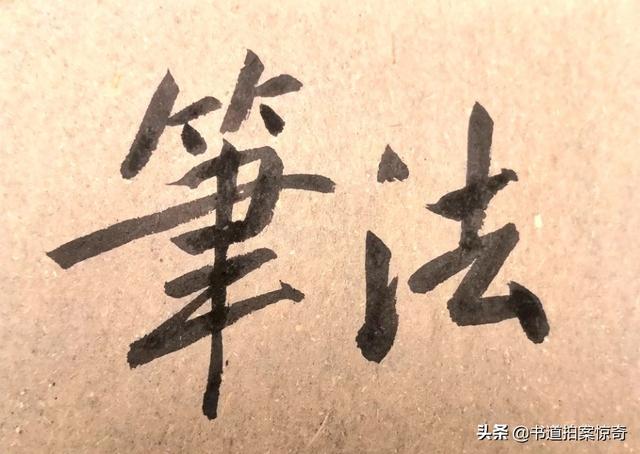 筆法
头条 @书道拍案惊奇